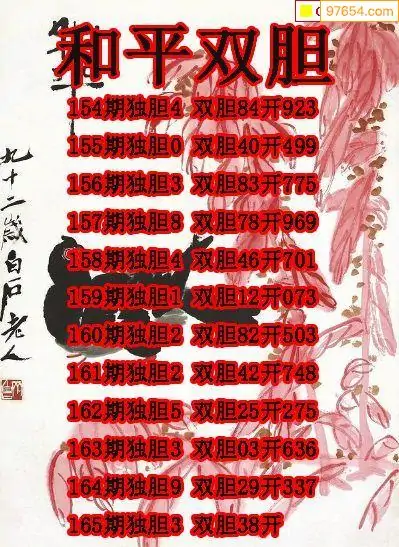 97654.com
和平双胆
154期独胆4 双胆84开923
155期独胆0 双胆40开499
156期独胆3 双胆83开775
157期独胆8 双胆78开969
158期独胆4 双胆46开701
159期独胆1 双胆12开073
160期独胆2 双胆82开503
161期独胆2 双胆42开748
162期独胆5 双胆25开275
163期独胆3 双胆03开636
164期独胆9 双胆29开337
165期独胆3 双胆38开
九十二岁白石老人